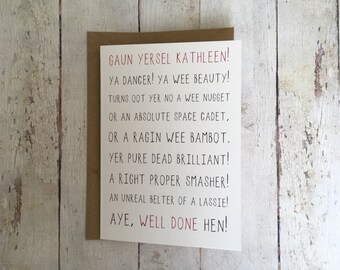 GAUN YERSEL KATHLEEN!
YA DANCER! YA WEE BEAUTY!
TURNS OOT YER NO A WEE NUGGET
OR AN ABSOLUTE SPACE CADET,
OR A RAGIN WEE BAMBOT.
YER PURE DEAD BRILLIANT!
A RIGHT PROPER SMASHER!
AN UNREAL BELTER OF A LASSIE!
AYE, WELL DONE HEN!